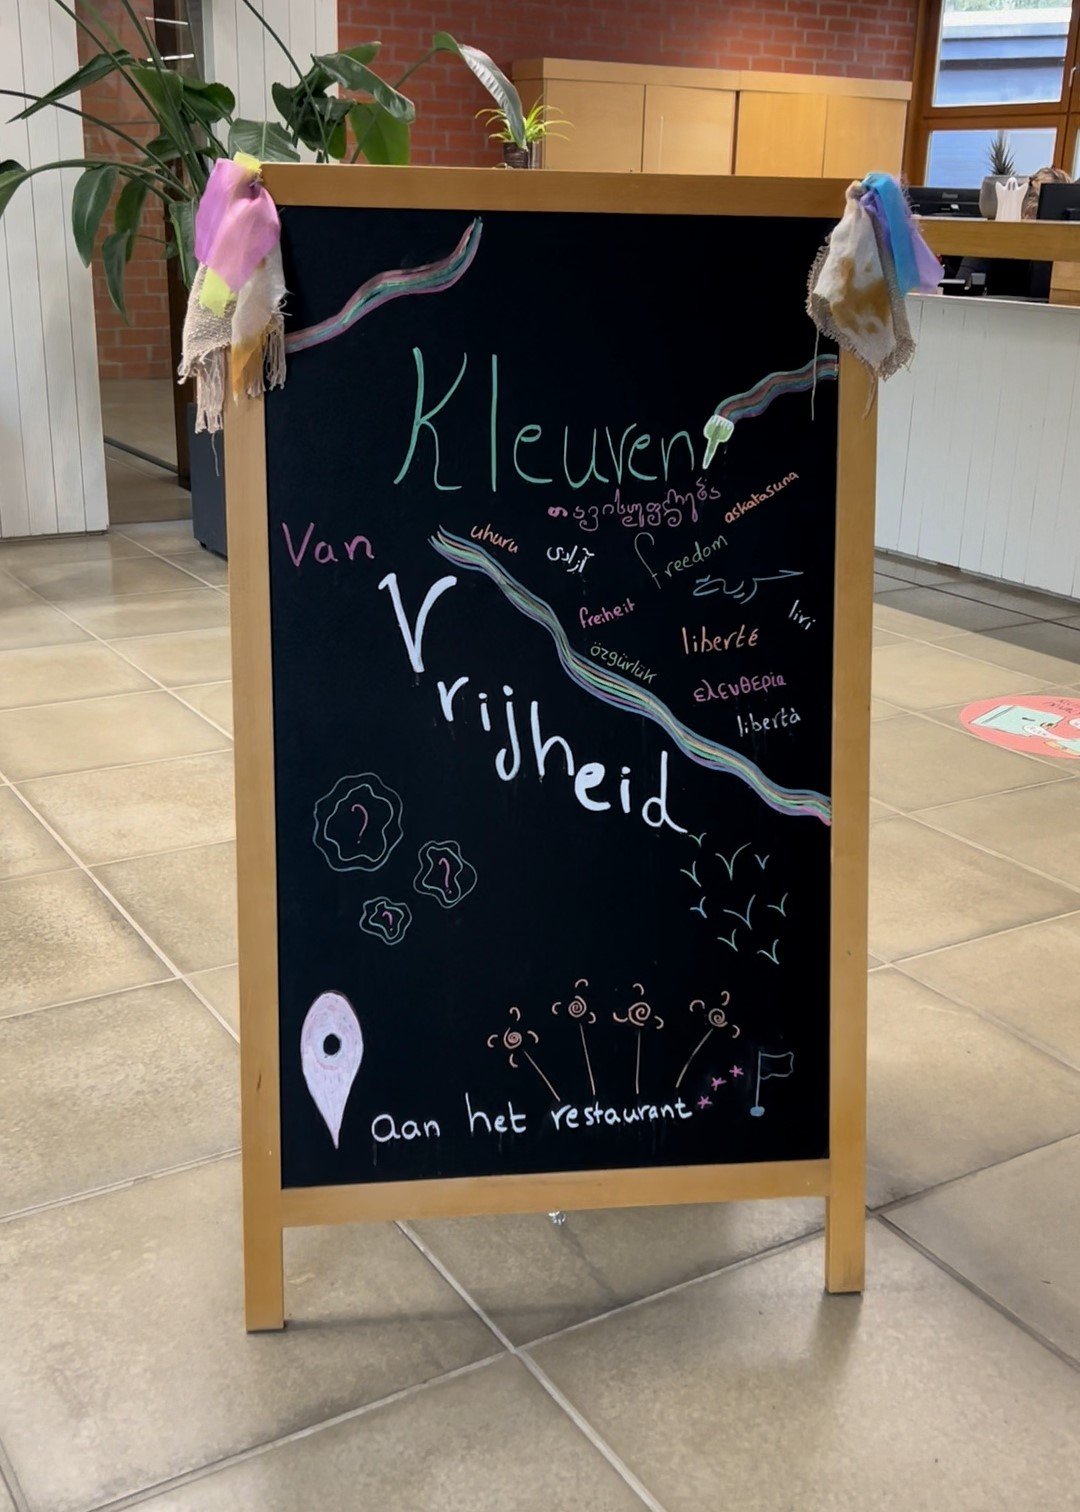 Kleuren
Van
Vrijheid
თავისუფლება
askatasuna
uhuru
آزادی
freedom
حرية
freiheit
liri
liberté
özgürlük
ελευθερία
libertà
?
?
?
aan het restaurant